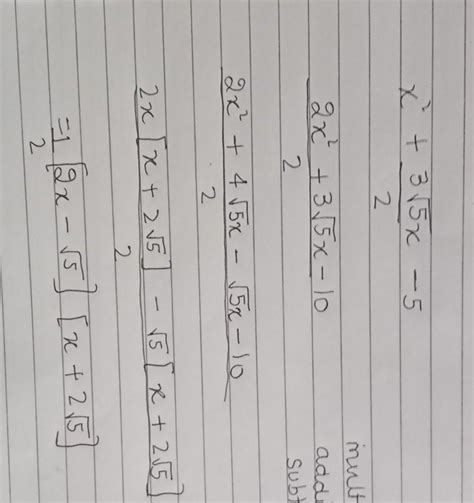 x² + 3√5x/2 - 5
2x² + 3√5x - 10 / 2
2x² + 4√5x - √5x - 10 / 2
2x [x + 2√5] - √5 [x + 2√5] / 2
= 1/2 [2x - √5] [x + 2√5]